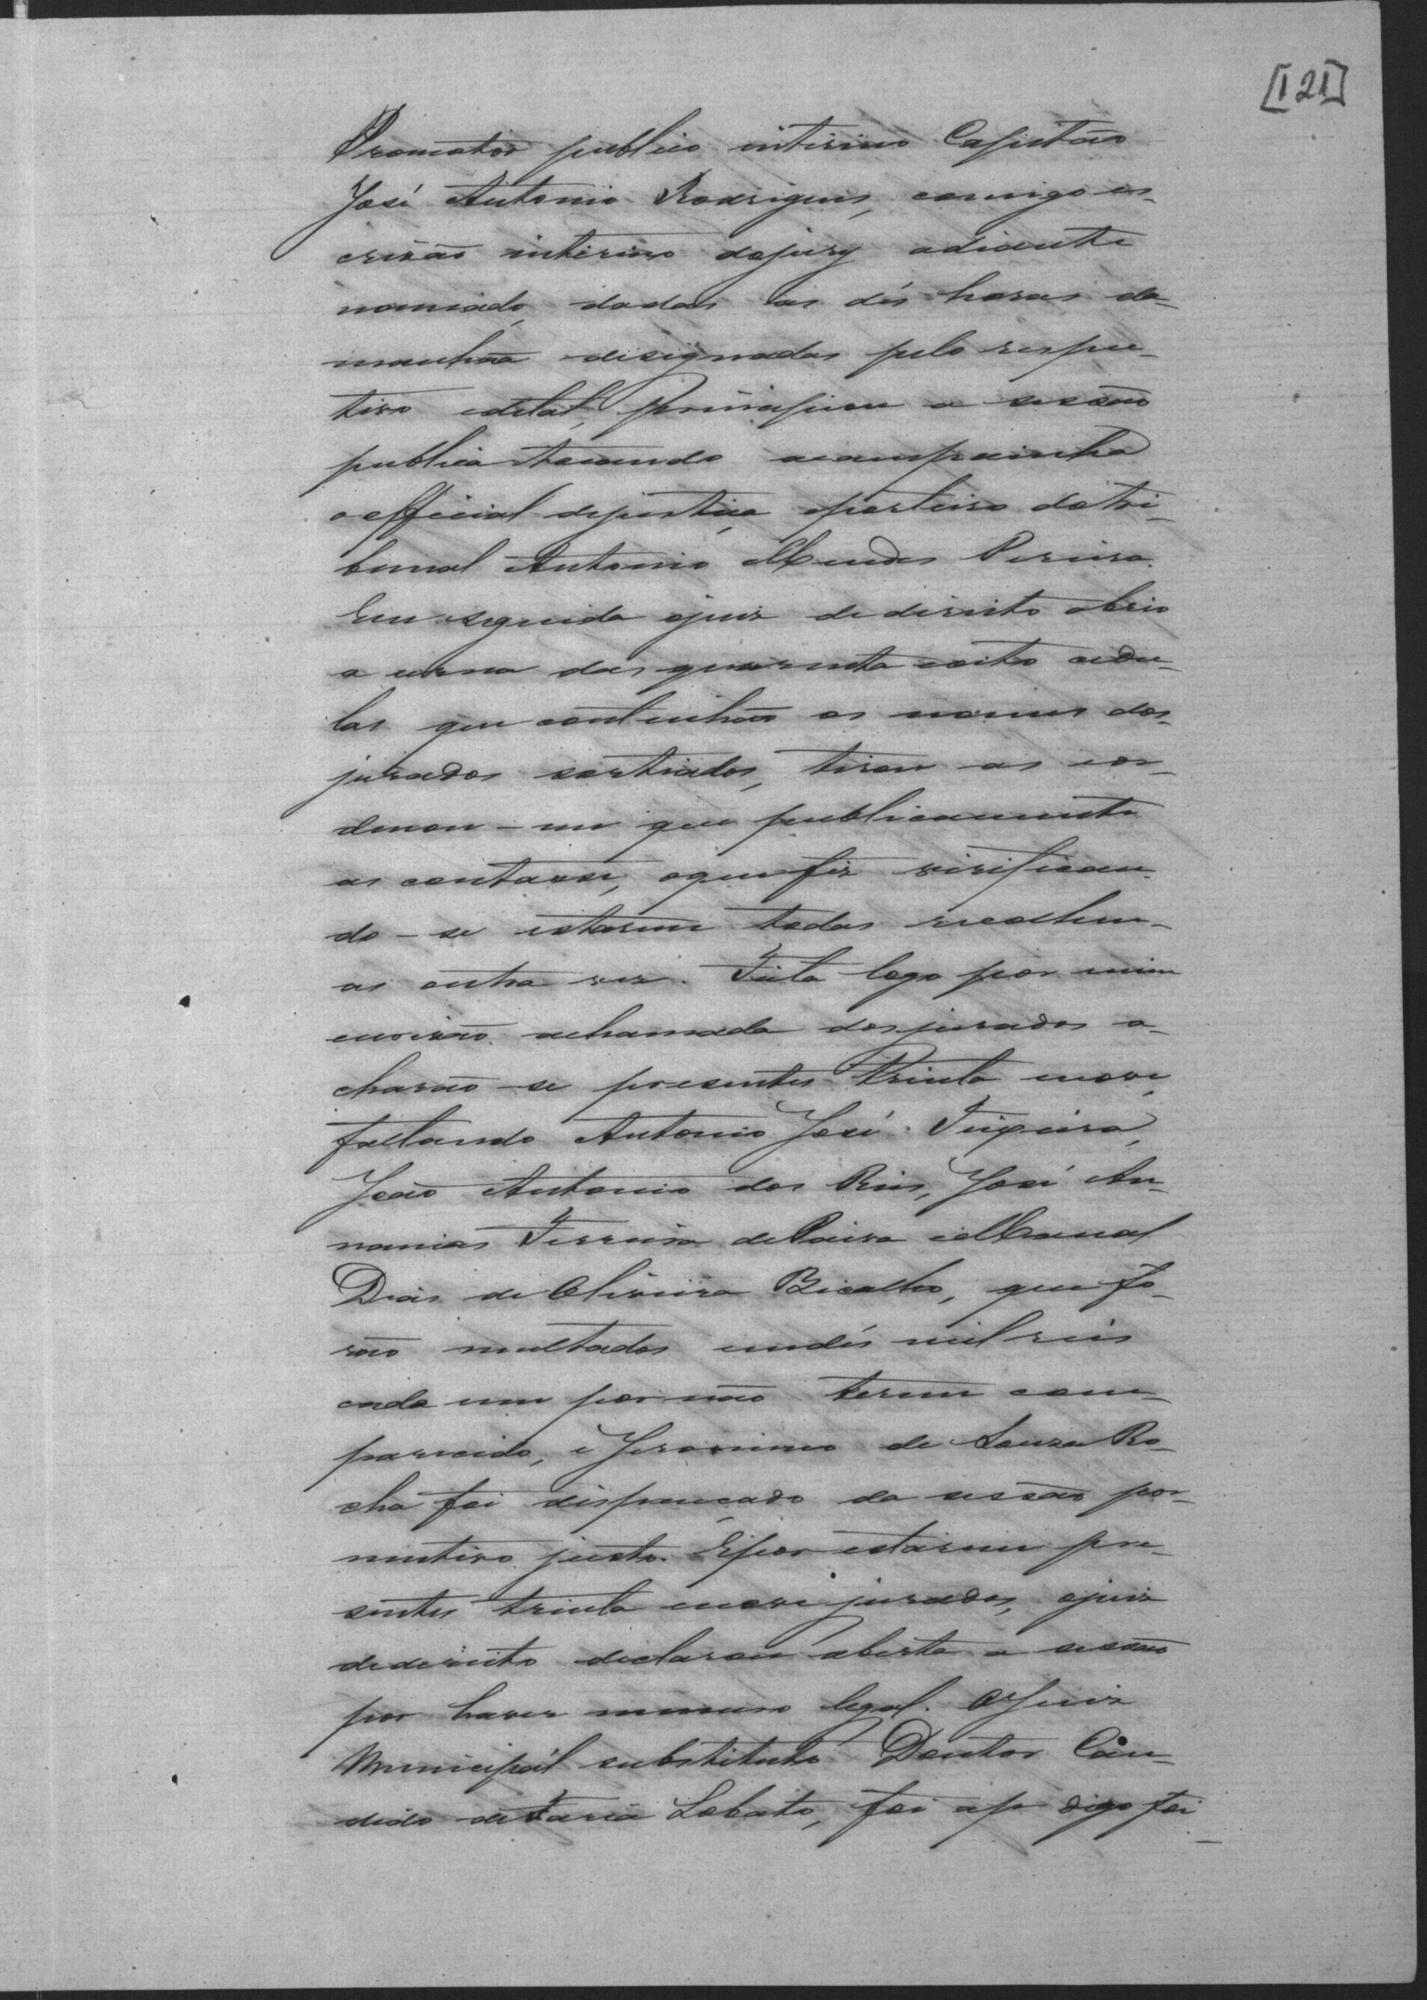 [121]
Promotor publico interino Capitão
José Antonio Rodrigues, comigo es-
crivão interino dojury adiante
nomiado, dadas as dés horas da-
manhãa designadas pelo respec-
tivo edital, principiou a sessão
publica tocando acampainha
o official dejustiça eporteiro do tri-
bunal Antonio Mendes Pereira.
Em seguida ojuiz de direito abrio
a urna das quarenta eoito cedu-
las que continhão os nomes dos-
jurados sortiados, tirou as eor-
denou-me que publicamente
as contasse, oque fiz virifican-
do-se estarem todas recolheu-
as outra vez. Feita logo por mim
escrivão achamada dos jurados a-
charão-se presentes trinta enove,
faltando Antonio José Teixeira,
João Antonio dos Reis, José An-
nanias Ferreira de Paiva e Manoel
Dias de Oliveira Bicalho, que fo-
rão multados emdés mil reis
cada um por não terem com-
parecido, e Jeronimo de Souza Ro-
cha foi dispençado da sessão por-
mutivo justo. Epor estarem pre-
sentes trinta enove jurados, ojuiz
dedireito declarou aberta a sessão
por haver numero legal. O Juiz
Municipal substituto Doutor Cân-
dido de Faria Lobato, foi ap digo foi